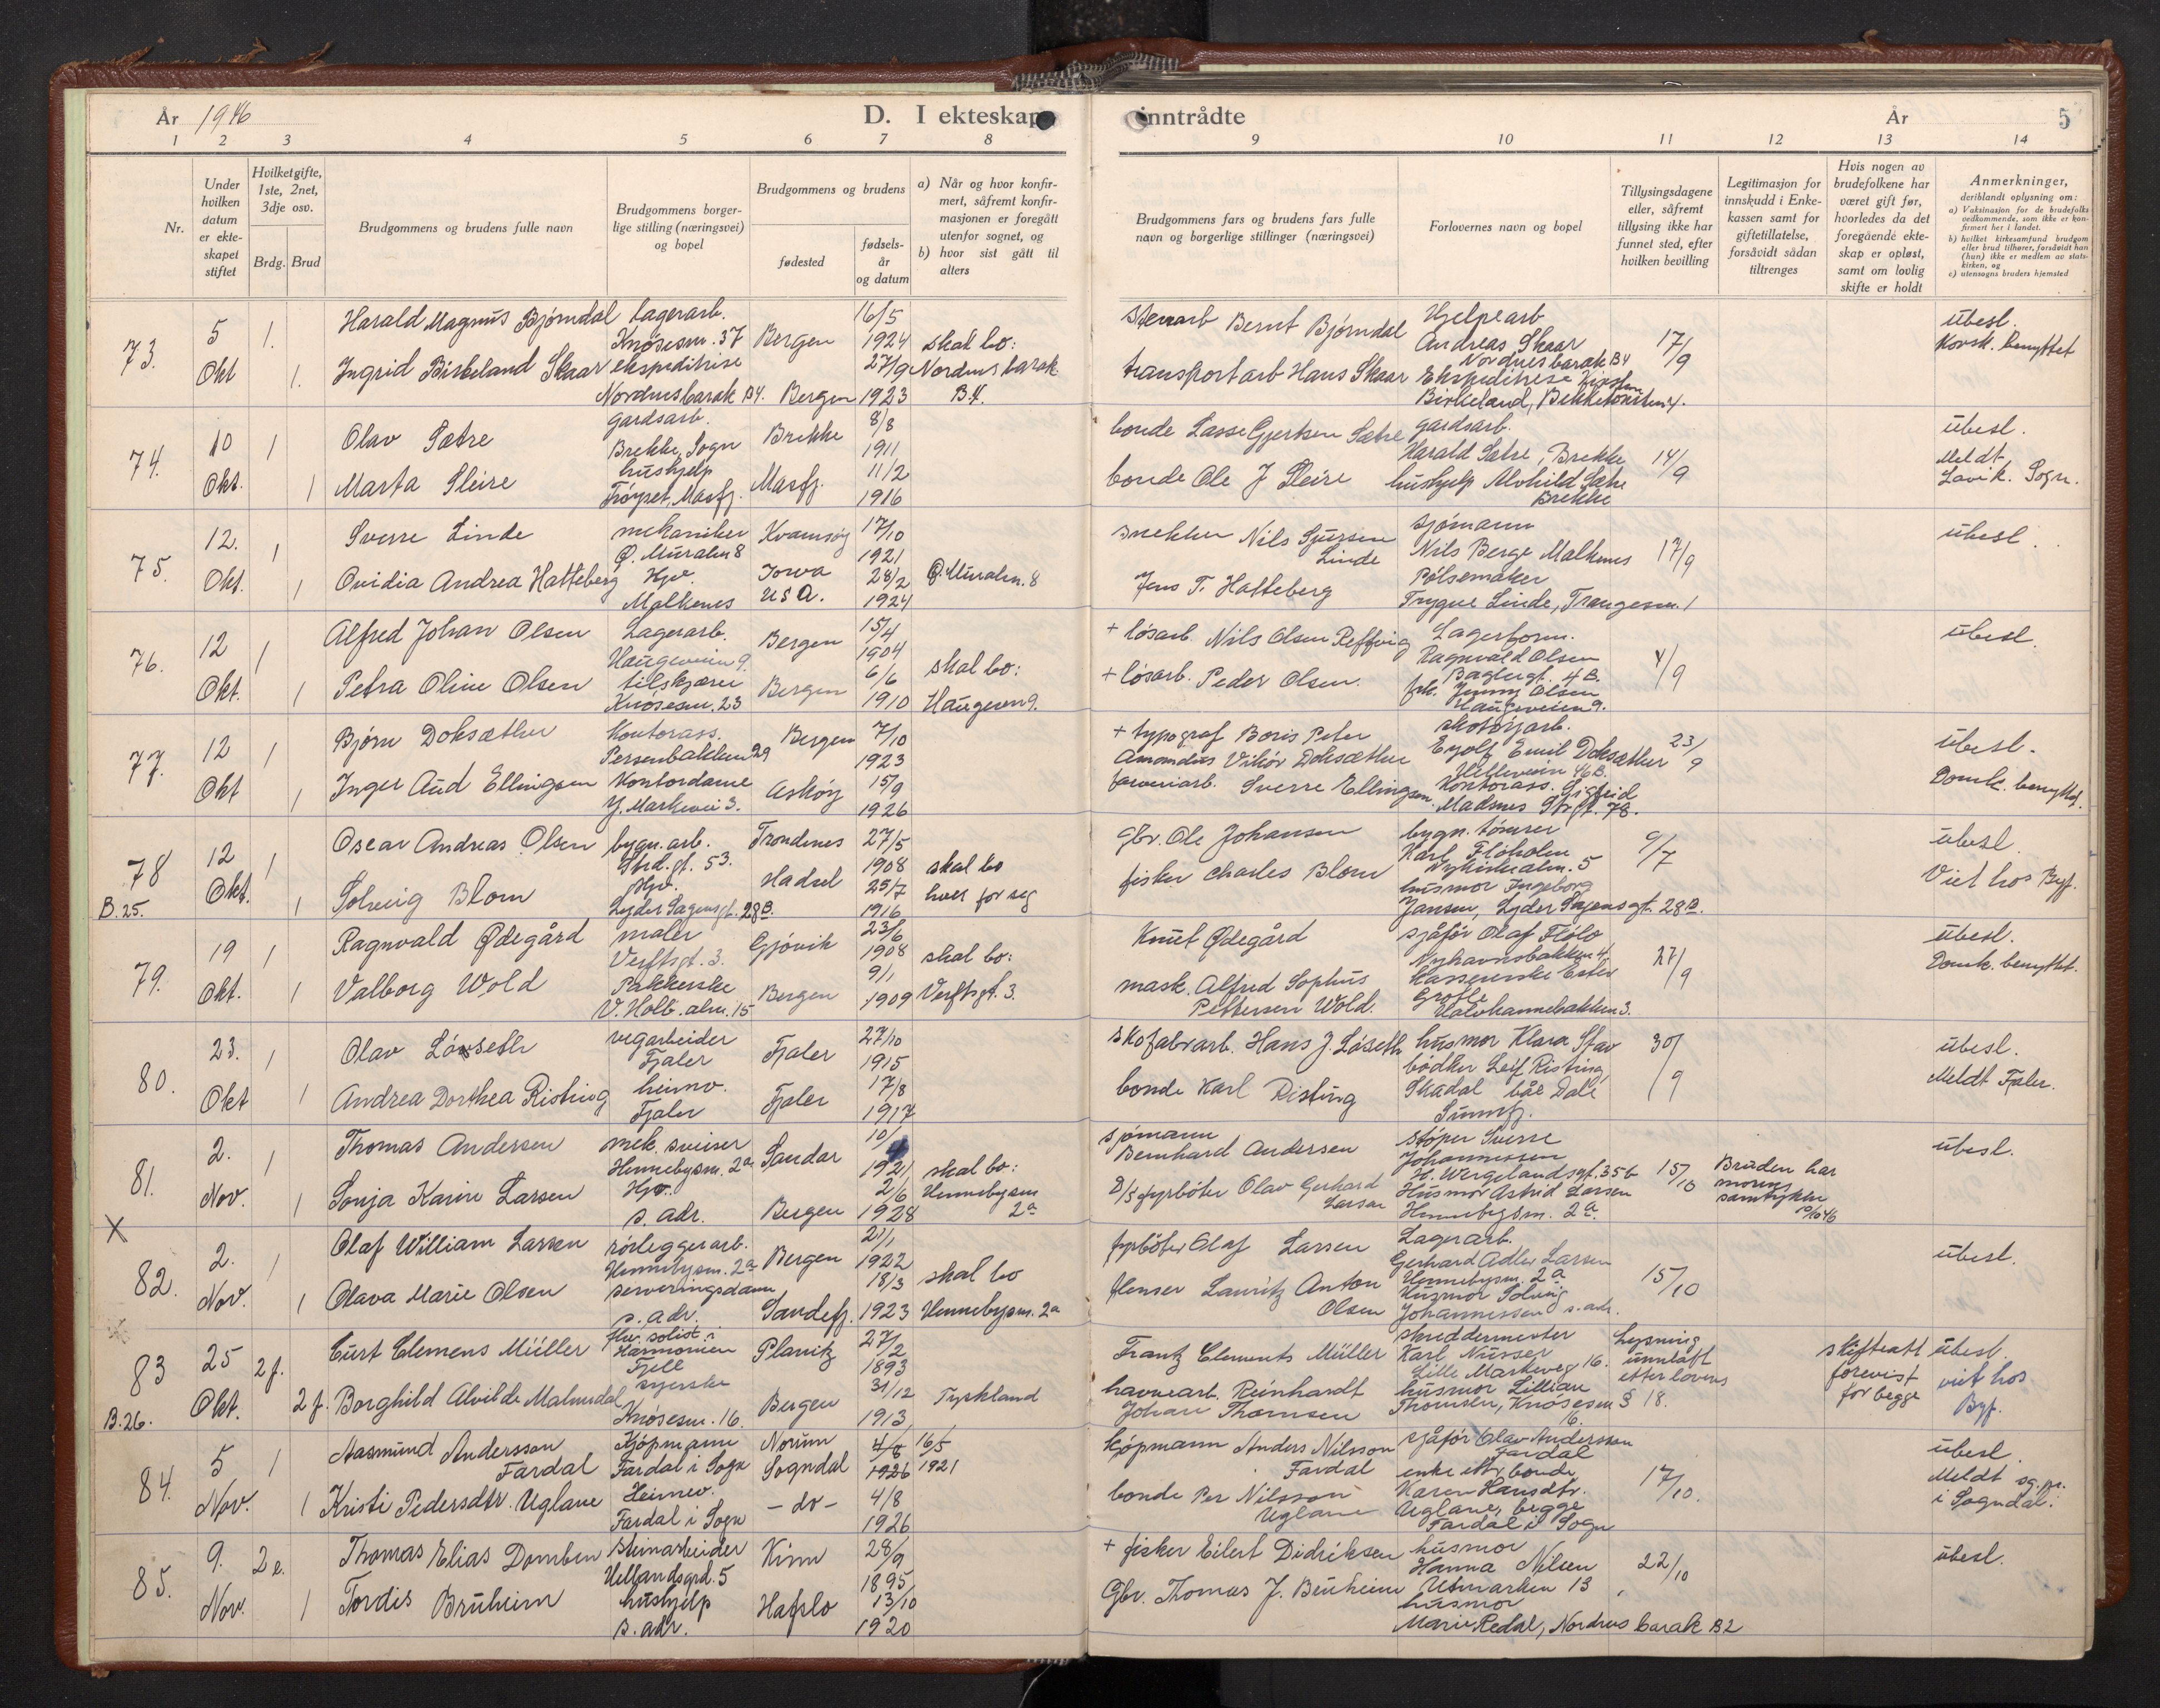 År 1946 D. I ekteskap
1 2 3 4 5 6 7 8
Nr.
Under hvilken datum er ekteskapet stiftet
Hvilket gifte, 1ste, 2net, 3dje osv.
Brdg. Brud
Brudgommens og brudens fulle navn
Brudgommens borgerlige stilling (næringsvei) og bopel
Brudgommens og brudens
fødested
fødselsår og datum
a) Når og hvor konfirmert, såfremt konfirmasjonen er foregått utenfor sognet, og
b) hvor sist gått til alters
73. 5 Okt 1. 1.
Harald Magnus Bjørndal
lagerarb.
Knøsesm. 37
Bergen
16/5
1924
skal bo:
Ingrid Birkeland Skaar
ekspeditrise
Nordnesbarak B4.
Bergen
27/9
1923
Nordnes barak
B.4.
74. 10 Okt. 1 1
Olav Sætre
gardsarb.
Brekke, Sogn
Brekke
8/8
1911
Marta Sleire
hushjelp
Frøyset, Masfj.
Masfj.
11/2
1916
75. 12. Okt. 1 1
Sverre Linde
mekaniker
Ø. Muralm 8
Kvamsøy
17/10
1921
Ovidia Andrea Hatteberg
Hjv.
Malkenes
Iowa
USA.
28/2
1924
Ø. Muralm. 8
76. 12 Okt. 1 1
Alfred Johan Olsen
Lagerarb.
Haugeveien 9.
Bergen
15/4
1904
skal bo:
Petra Oline Olsen
tilskjærer
Knøsesm. 23
Bergen
6/6
1910
Haugeven 9.
77. 12 Okt 1 1
Bjørn Doksæther
Kontorass.
Persenbakken 29
Bergen
7/10
1923
Inger Aud Ellingsen
Kontordame
Y. Markevei 3.
Askøy
15/9
1926
78 B.25. 12 Okt. 1 1
Oscar Andreas Olsen
bygn. arb.
Strd.gt. 53.
Trondenes
27/5
1908
skal bo
Solveig Blom
Hjv.
Lyder Sagensgt. 28B.
Hadsel
25/7
1916
hver for seg
79. 19 Okt. 1 1
Ragnvald Ødegård
maler
Verftsgt. 3.
Gjøvik
23/6
1908
skal bo:
Valborg Wold
Pakkerske
V. Holb. alm. 15
Bergen
9/1
1909
Verftsgt. 3.
80. 23. Okt 1 1
Olav Løvseth
vegarbeider
Fjaler
Fjaler
27/10
1915
Andrea Dorthea Risting
heimv.
Fjaler
Fjaler
17/8
1917
81. 2. Nov. 1 1
Thomas Andersen
mek. sveiser
Hennebysm. 2a
Sandar
10/
1921
skal bo:
Sonja Karin Larsen
Hjv.
s. adr.
Bergen
2/6
1928
Hennebysm
2a
X
82. 2. Nov. 1 1
Olaf William Larsen
rørleggerarb.
Hennebysm. 2a
Bergen
21/1
1922
skal bo
Olava Marie Olsen
serveringsdame
s. adr.
Sandefj.
18/3
1923
Hennebysm. 2a
83 B.26. 25 Okt. 2 f. 2 f.
Curt Clemens Müller
fhv. solist i
Harmonien
Fjell
Planitz
27/2
1893
Borghild Alvilde Malmedal
syerske
Knøsesm. 16.
Bergen
31/12
1913
Tyskland
84. 5 Nov. 1 1
Aasmund Andersson
Fardal
Kjøpmann
Fardal i Sogn
Norum
Sogndal
4/8 16/5
1926 1921
Kristi Pedersdtr. Uglane
Heimev.
Fardal i Sogn
- do -
4/8
1926
85. 9. Nov. 2 e. 1
Thomas Elias Domben
Steinarbeider
Uellandsgrd. 5
Kinn
28/9
1895
Tordis Bruheim
hushjelp
s. adr.
Hafslo
13/10
1920
inntrådte År 5
9 10 11 12 13 14
Brudgommens fars og brudens fars fulle navn og borgerlige stillinger (næringsvei)
Forlovernes navn og bopel
Tillysingsdagene eller, såfremt tillysing ikke har funnet sted, efter hvilken bevilling
Legitimasjon for innskudd i Enkekassen samt for giftetillatelse, forsåvidt sådan tiltrenges
Hvis nogen av brudefolkene har været gift før, hvorledes da det foregående ekteskap er opløst, samt om lovlig skifte er holdt
Anmerkninger, deriblandt oplysning om:
a) Vaksinasjon for de brudefolks vedkommende, som ikke er konfirmert her i landet.
b) hvilket kirkesamfund brudgom eller brud tilhører, forsåvidt han (hun) ikke er medlem av statskirken, og
c) utensogns bruders hjemsted
Bernt Bjørndal
Hjelpearb
Andreas Skaar
Nordnesbarak B4
17/9
ubesl.
Korsk. benyttet
transportarb Hans Skaar
Ekspeditrise Kirsten
Birkeland, 4.
bonde Lasse Gjertsen Sætre
gardsarb.
Harald Sætre, Brekke
14/9
ubesl.
Meldt
Lavik. Sogn.
bonde Ole J Sleire
hushjelp Alvhild Sætre
Brekke
snekker Nils Sjursen
Linde
sjømann
Nils Berge Malkenes
17/9
ubesl.
Jens T. Hatteberg
Pølsemaker
Trygve Linde, Trangesm. 1
+ løsarb. Nils Olsen Reffvig
Lagerform.
Ragnvald Olsen
Baglergt. 4B.
4/9
ubesl.
+ løsarb. Peder Olsen.
frk. Jenny Olsen
Haugeveien 9.
+ typograf Boris Peter
Amandus Vikør Doksæther
skotøyarb.
Eyolf Emil Doksæther
Helleveien 46B.
23/9
ubesl.
Domk. benyttet.
farveriarb. Sverre Ellingsen.
Kontorass. Sigfrid
Madsnes Strgt. 78.
Gbr. Ole Johansen
bygn. tømrer
Karl Fløholm
Nykirkealm. 5
9/7
ubesl.
Viet hos Byf.
fisker Charles Blom
husmor Ingeborg
Jansen, Lyder Sagensgt. 28B.
Knut Ødegård
sjåfør Olaf Flølo
Nyhavnsbakken 4.
27/9
ubesl.
Domk. benyttet.
mask. Alfred Sophus
Pettersen Wold.
Kassererske Ester
3.
skofabrarb. Hans J. Løseth
husmor Klara Stav
30/9
ubesl.
Meldt Fjaler.
bonde Karl Risting
bødker Leif Risting
Skadal både Dale
Sunnfj.
sjømann
Bernhard Andersen
støper Sverre
Johannessen
H. Wergelandsgt. 35b
15/10
Bruden har
morens
samtykke
10/10 46
ubesl.
D/S fyrbøter Olav Gerhard
Larsen
Husmor Astrid Larsen
Hennebysm. 2a.
fyrbøter Olaf Larsen
Lagerarb.
Gerhard Adler Larsen
Hennebysm. 2a
15/10
ubesl.
flenser Lauritz Anton
Olsen
Husmor Solveig
Johannessen s. adr.
Frantz Clements Müller
skreddermester
Karl Nusser
Lille Markeveg 16.
Lysning
unnlatt
etter lovens
§ 18.
skifteatt
forevist
for begge
ubesl.
viet hos
Byf.
havnearb. Reinhardt
Johan Thomsen
husmor Lillian
Thomsen, Knøsesm
16.
kjøpmann Anders Nilsson
Fardal
sjåfør Olav Andersson
Fardal
17/10.
ubesl.
Meldt sg.pr.
i Sogndal.
bonde Per Nilsson
Uglane
enke ettr bonde
Karen Hansdtr.
Uglane, begge
Fardal i Sogn
+ fisker Eilert Didriksen
husmor
Hanna Nilsen
Utmarken 13
22/10
ubesl.
Gbr. Thomas J. Bruheim
husmor
Marie Redal, Nordnes barak B2